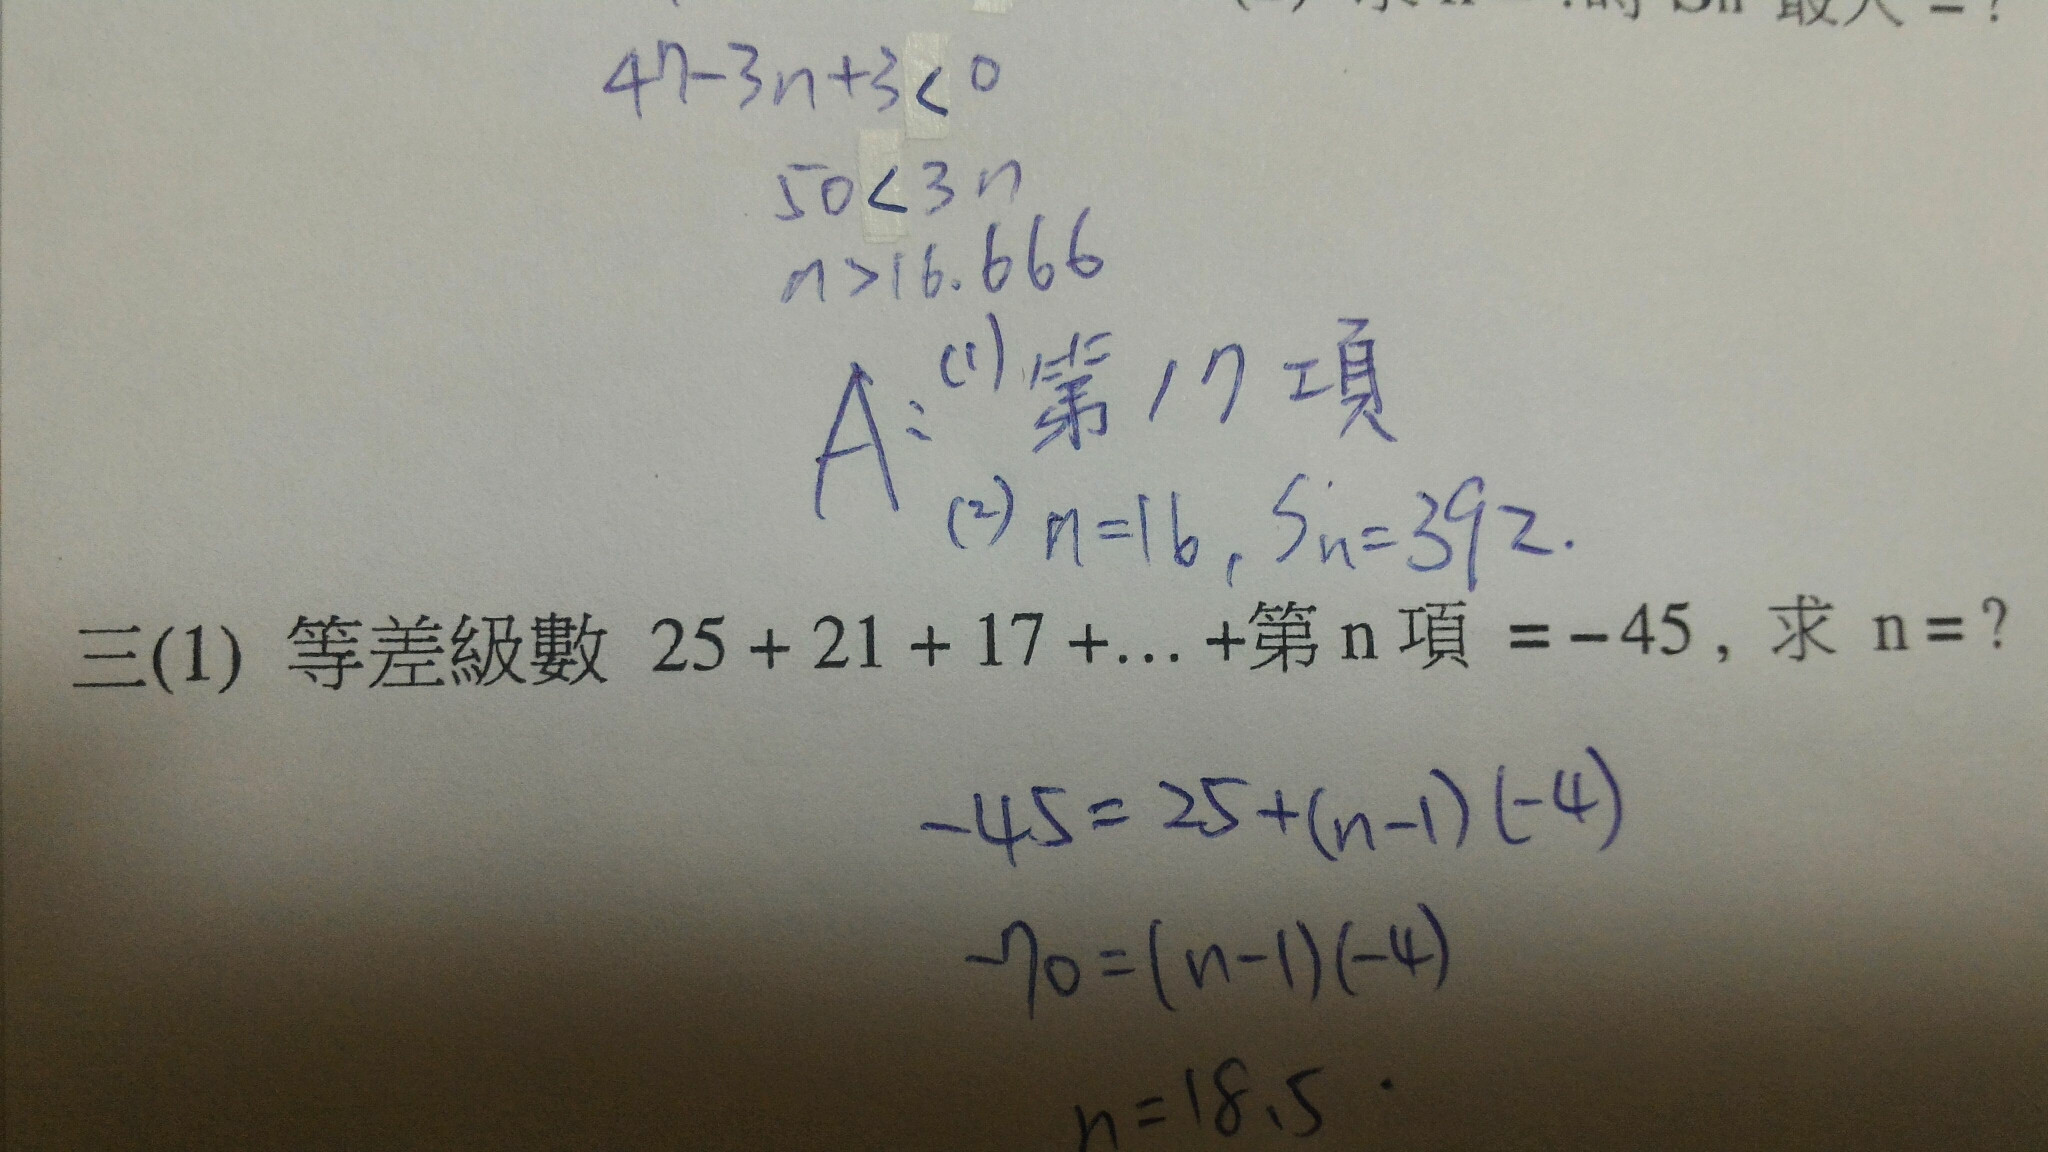 最大 = ?
47-3n+3<0
50<3n
n>16.666
A: (1) 第17項
(2) n=16, Sn=392.
三(1) 等差級數 25 + 21 + 17 +… +第 n 項 = -45, 求 n = ?
-45 = 25+(n-1)(-4)
-70=(n-1)(-4)
n=18.5